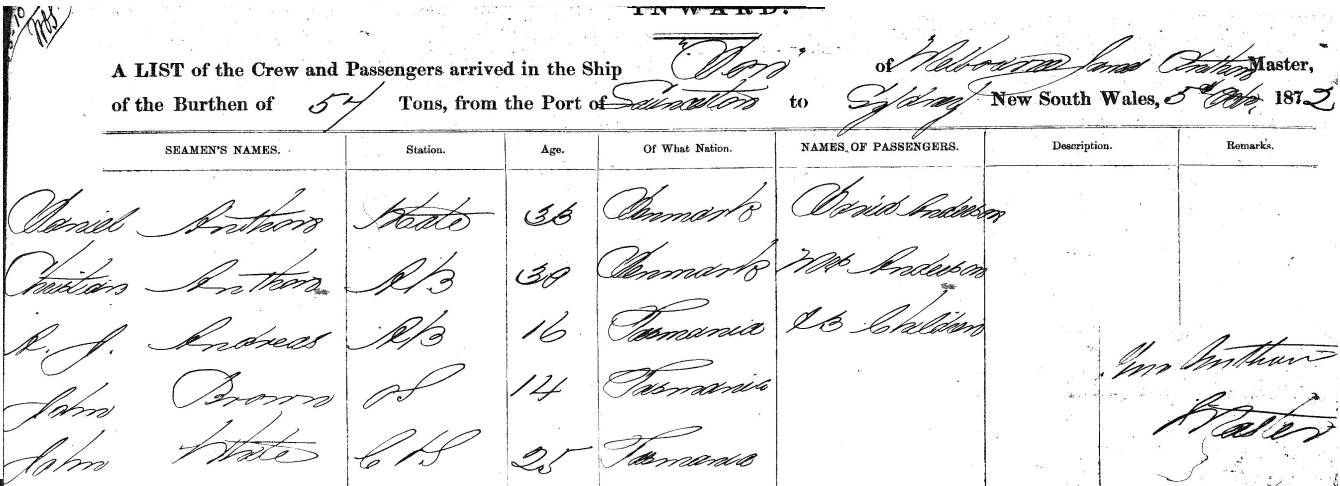 INWARD.
A LIST of the Crew and Passengers arrived in the Ship "Don" of Melbourne James Anthon Master,
of the Burthen of 54 Tons, from the Port of Launceston to Sydney New South Wales, 5th Octr 1872
SEAMEN'S NAMES. Station. Age. Of What Nation. NAMES OF PASSENGERS. Description. Remarks.
Daniel Anthon Mate 33 Denmark David Anderson
Christian Anthon AB 30 Denmark Mrs Anderson
A. J. Andreas AB 16 Tasmania & 3 Children
John Brown OS 14 Tasmania
John State C & S 25 Tasmania
Anthon
Master